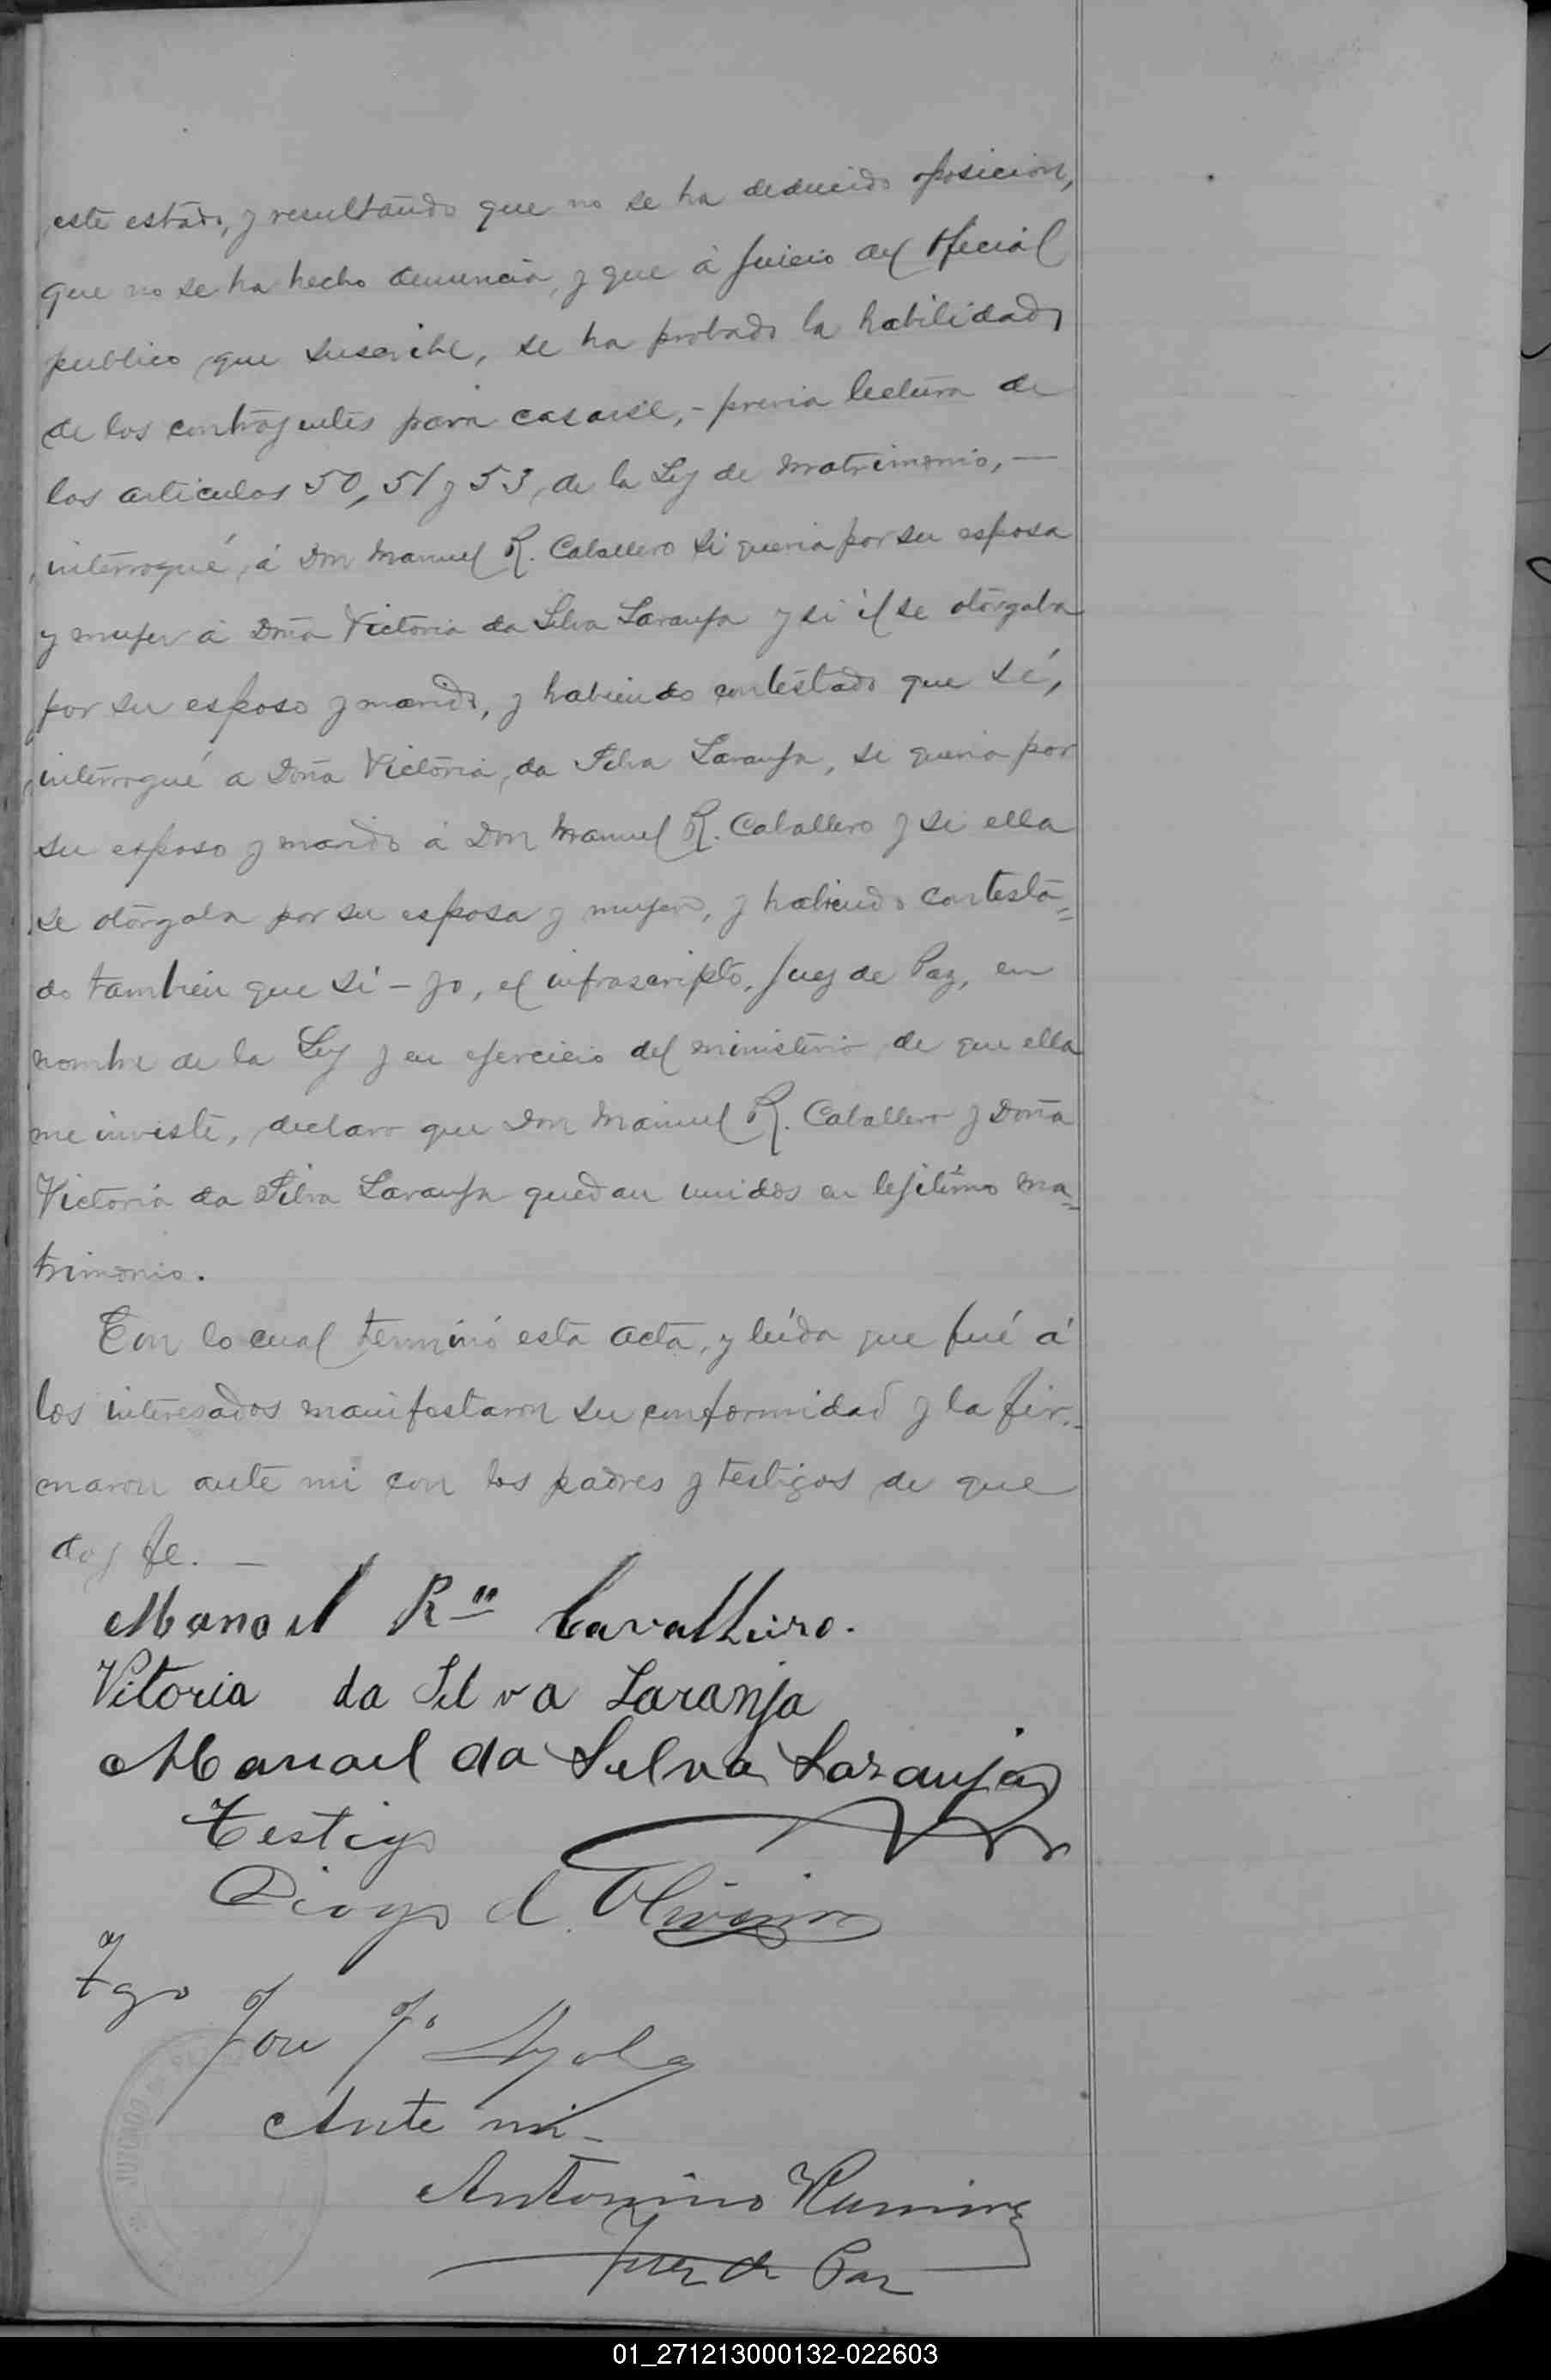 este estado, y resultando que no se ha deducido oposicion,
que no se ha hecho denuncia, y que á juicio del Oficial
publico que suscribe, se ha probado la habilidad
de los contrayentes para casarse, - previa lectura de
los articulos 50, 51 y 53, de la Ley de Matrimonio, —
interrogué, á Don Manuel R. Caballero si queria por su esposa
y mujer á Doña Victoria da Silva Laranja y si él se otorgaba
por su esposo y marido, y habiendo contestado que sí,
interrogué a Doña Victoria, da Silva Laranja, si queria por
su esposo y marido á Don Manuel R. Caballero y si ella
se otorgaba por su esposa y mujer, y habiendo contesta=
do tambien que sí - yo, el infrascripto, Juez de Paz, en
nombre de la Ley y en ejercicio del ministerio de que ella
me inviste, declaro que Don Manuel R. Caballero y Doña
Victoria da Silva Laranja quedan unidos en lejítimo ma=
trimonio.
Con lo cual terminó esta acta, y leída que fué á
los interesados manifestaron su conformidad y la fir=
maron ante mi con los padres y testigos de que
doy fe. —
Manoel R.. Cavalheiro.
Vitoria da Silva Laranja
Manoel da Silva Laranja
Testigo
Diogo d. Oliveira
Tgo
Jose Ayala
Ante mi -
Antonino Ramirez
Juez de Paz
JUZGADO
01_271213000132-022603